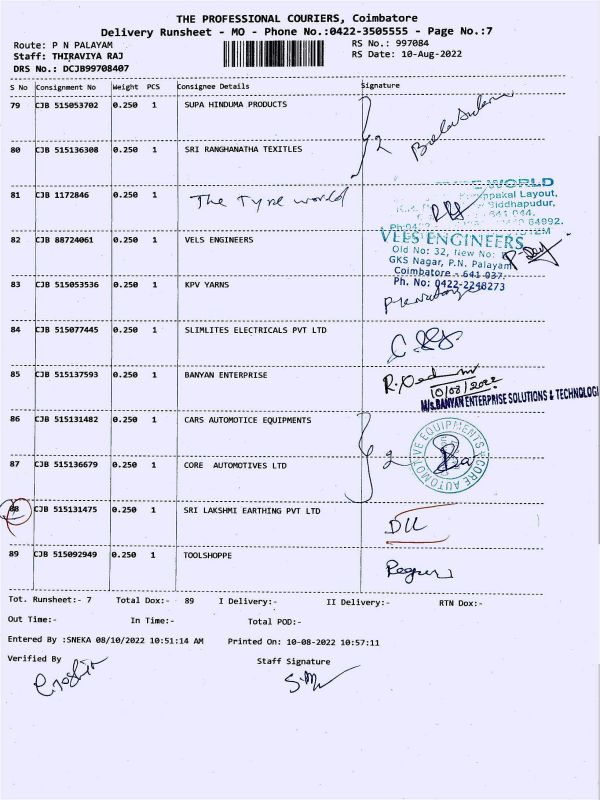 THE PROFESSIONAL COURIERS, Coimbatore
Delivery Runsheet - MO - Phone No.:0422-3505555 - Page No.:7
Route: P N PALAYAM RS No.: 997084
Staff: THIRAVIYA RAJ RS Date: 10-Aug-2022
DRS No.: DCJB99708407
S No Consignment No Weight PCS Consignee Details Signature
79 CJB 515053702 0.250 1 SUPA HINDUMA PRODUCTS
80 CJB 515136308 0.250 1 SRI RANGHANATHA TEXITLES
2
81 CJB 1172846 0.250 1 The Tyre world
WORLD
Layout,
Siddhapudur,
641 044.
64992.
82 CJB 88724061 0.250 1 VELS ENGINEERS
VELS ENGINEERS
Old No: 32, New No:
GKS Nagar, P.N. Palayam
Coimbatore - 641 037.
Ph. No: 0422-2248273
83 CJB 515053536 0.250 1 KPV YARNS
84 CJB 515077445 0.250 1 SLIMLITES ELECTRICALS PVT LTD
85 CJB 515137593 0.250 1 BANYAN ENTERPRISE
10/08/2022
M/s.BANYAN ENTERPRISE SOLUTIONS & TECHNOLOGI
86 CJB 515131482 0.250 1 CARS AUTOMOTICE EQUIPMENTS
87 CJB 515136679 0.250 1 CORE AUTOMOTIVES LTD
2
CORE AUTOMOTIVE EQUIPMENTS
88 CJB 515131475 0.250 1 SRI LAKSHMI EARTHING PVT LTD
89 CJB 515092949 0.250 1 TOOLSHOPPE
Tot. Runsheet:- 7 Total Dox:- 89 I Delivery:- II Delivery:- RTN Dox:-
Out Time:- In Time:- Total POD:-
Entered By :SNEKA 08/10/2022 10:51:14 AM Printed On: 10-08-2022 10:57:11
Verified By Staff Signature